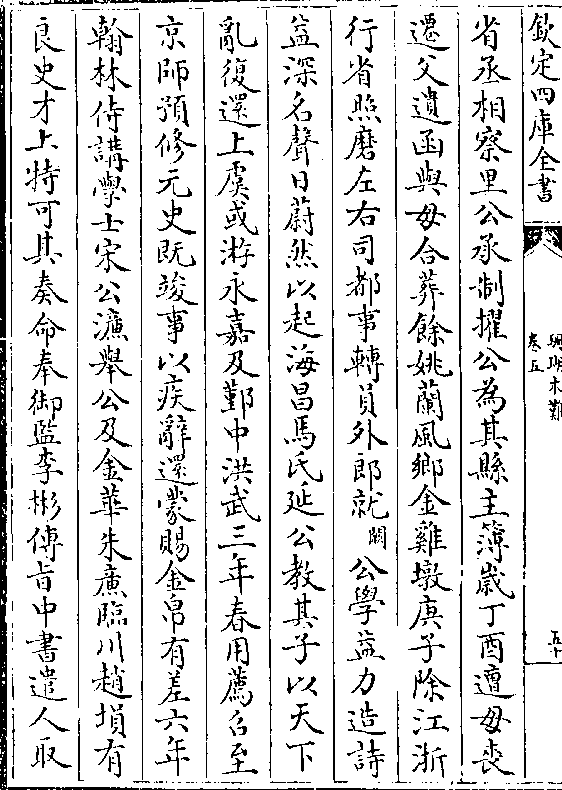 欽定四庫全書
珊瑚木難
卷五
五十
省丞相察里公承制擢公為其縣主簿歲丁酉遭母喪
遷父遺函與母合葬餘姚蘭風鄉金雞墩庚子除江浙
行省照磨左右司都事轉員外郎就闕公學益力造詩
益深名聲日蔚然以起海昌馬氏延公教其子以天下
亂復還上虞或游永嘉及鄞中洪武三年春用薦召至
京師預修元史既竣事以疾辭還蒙賜金帛有差六年
翰林侍講學士宋公濂舉公及金華朱㢘臨川趙塤有
良史才上特可其奏命奉御監李彬傳旨中書遣人取